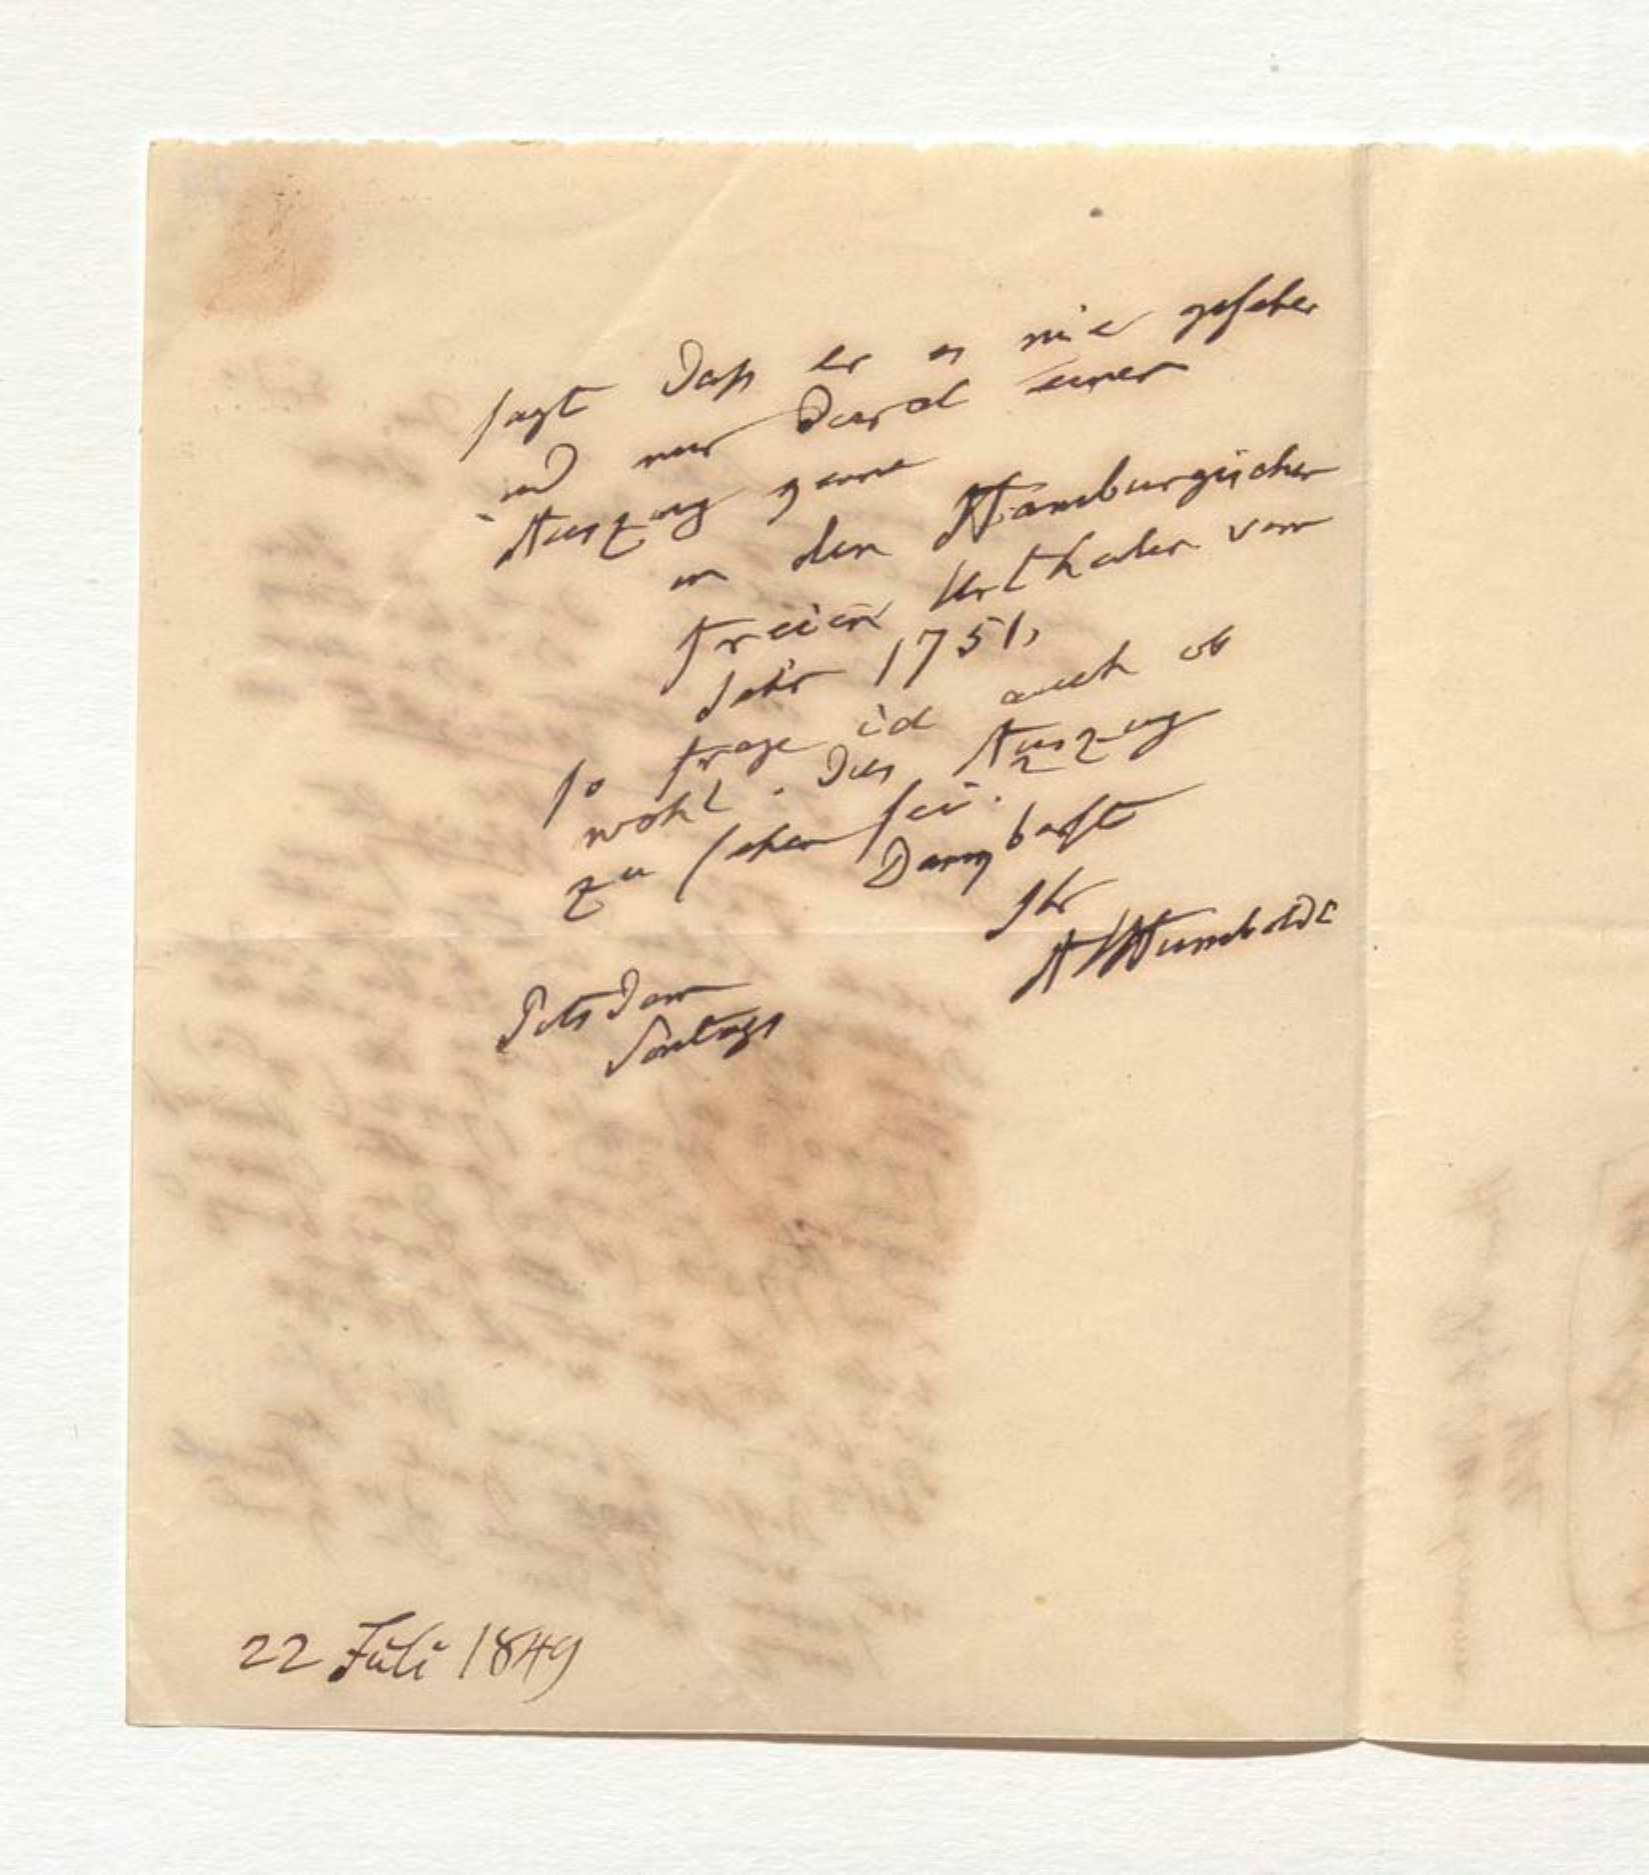 sagt daß er es nie gesehen
und nur durch einen
Auszug kenne
in den Hamburgischen
freien Urtheilen vom
Jahr 1751,
so frage ich auch ob
wohl der Auszug
zu sehen sei.
Dankbarst
Ihr
AvHumboldt
Potsdam
Sontags
22 Juli 1849